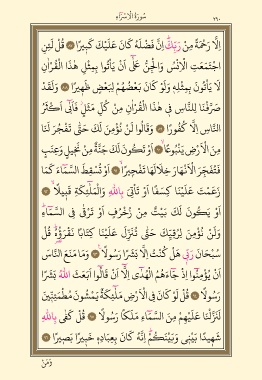 سُورَةُ الْاِسْرَاءِ
٢٩٠
اِلَّا رَحْمَةً مِنْ رَبِّكَ اِنَّ فَضْلَهُ كَانَ عَلَيْكَ كَبِيرًا ﴿٨٧﴾ قُلْ لَئِنِ
اجْتَمَعَتِ الْاِنْسُ وَالْجِنُّ عَلٰٓى اَنْ يَأْتُوا بِمِثْلِ هٰذَا الْقُرْاٰنِ
لَا يَأْتُونَ بِمِثْلِهِ وَلَوْ كَانَ بَعْضُهُمْ لِبَعْضٍ ظَهِيرًا ﴿٨٨﴾ وَلَقَدْ
صَرَّفْنَا لِلنَّاسِ فِي هٰذَا الْقُرْاٰنِ مِنْ كُلِّ مَثَلٍ فَاَبٰٓى اَكْثَرُ
النَّاسِ اِلَّا كُفُورًا ﴿٨٩﴾ وَقَالُوا لَنْ نُؤْمِنَ لَكَ حَتّٰى تَفْجُرَ لَنَا
مِنَ الْاَرْضِ يَنْبُوعًا ﴿٩٠﴾ اَوْ تَكُونَ لَكَ جَنَّةٌ مِنْ نَخِيلٍ وَعِنَبٍ
فَتُفَجِّرَ الْاَنْهَارَ خِلَالَهَا تَفْجِيرًا ﴿٩١﴾ اَوْ تُسْقِطَ السَّمَٓاءَ كَمَا
زَعَمْتَ عَلَيْنَا كِسَفًا اَوْ تَأْتِيَ بِاللّٰهِ وَالْمَلٰٓئِكَةِ قَبِيلًا ﴿٩٢﴾
اَوْ يَكُونَ لَكَ بَيْتٌ مِنْ زُخْرُفٍ اَوْ تَرْقٰى فِي السَّمَٓاءِ
وَلَنْ نُؤْمِنَ لِرُقِيِّكَ حَتّٰى تُنَزِّلَ عَلَيْنَا كِتَابًا نَقْرَؤُهُ قُلْ
سُبْحَانَ رَبِّي هَلْ كُنْتُ اِلَّا بَشَرًا رَسُولًا ﴿٩٣﴾ وَمَا مَنَعَ النَّاسَ
اَنْ يُؤْمِنُٓوا اِذْ جَٓاءَهُمُ الْهُدٰٓى اِلَّٓا اَنْ قَالُٓوا اَبَعَثَ اللّٰهُ بَشَرًا
رَسُولًا ﴿٩٤﴾ قُلْ لَوْ كَانَ فِي الْاَرْضِ مَلٰٓئِكَةٌ يَمْشُونَ مُطْمَئِنِّينَ
لَنَزَّلْنَا عَلَيْهِمْ مِنَ السَّمَٓاءِ مَلَكًا رَسُولًا ﴿٩٥﴾ قُلْ كَفٰى بِاللّٰهِ
شَهِيدًا بَيْنِي وَبَيْنَكُمْ اِنَّهُ كَانَ بِعِبَادِهِ خَبِيرًا بَصِيرًا ﴿٩٦﴾
وَمَنْ